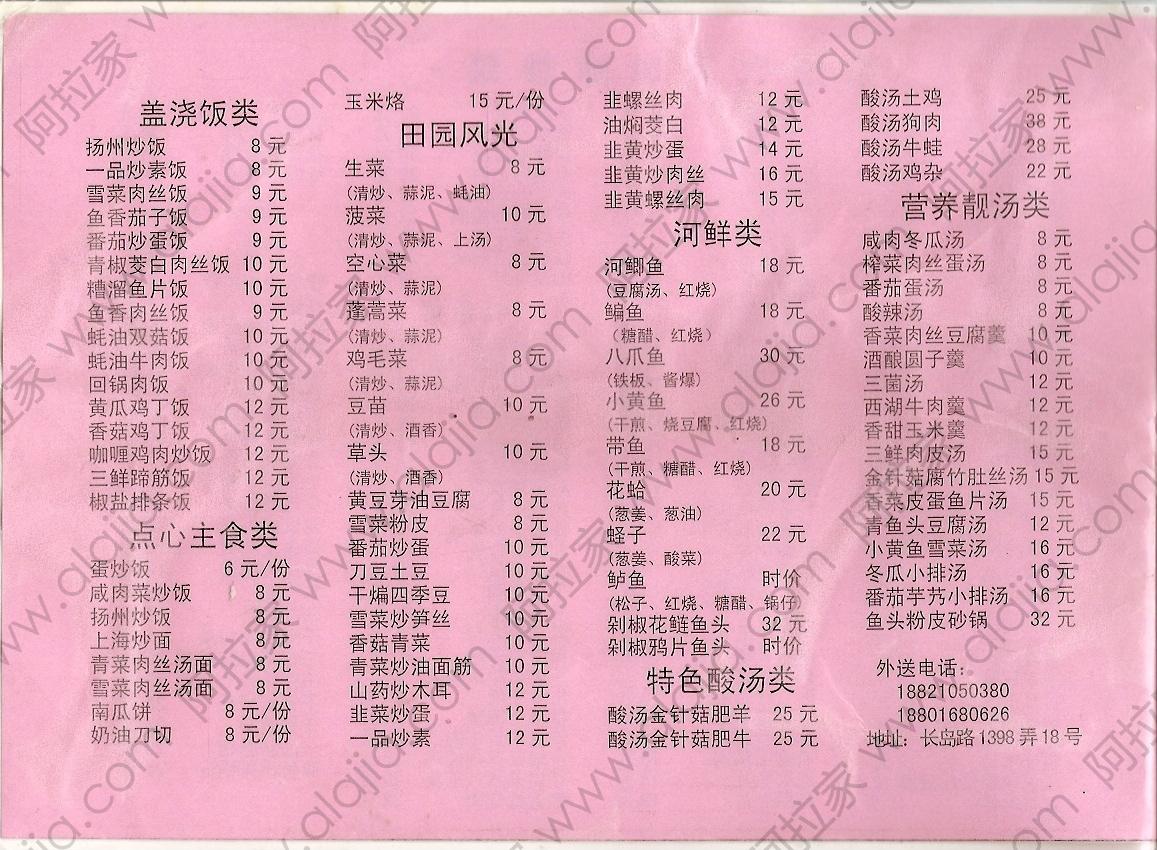 盖浇饭类
扬州炒饭 8 元
一品炒素饭 8 元
雪菜肉丝饭 9 元
鱼香茄子饭 9 元
番茄炒蛋饭 9 元
青椒茭白肉丝饭 10 元
糟溜鱼片饭 10 元
鱼香肉丝饭 9 元
蚝油双菇饭 10 元
蚝油牛肉饭 10 元
回锅肉饭 10 元
黄瓜鸡丁饭 12 元
香菇鸡丁饭 12 元
咖喱鸡肉炒饭 12 元
三鲜蹄筋饭 12 元
椒盐排条饭 12 元
点心主食类
蛋炒饭 6 元/份
咸肉菜炒饭 8 元
扬州炒饭 8 元
上海炒面 8 元
青菜肉丝汤面 8 元
雪菜肉丝汤面 8 元
南瓜饼 8 元/份
奶油刀切 8 元/份
玉米烙 15 元/份
田园风光
生菜 8 元
(清炒、蒜泥、蚝油)
菠菜 10 元
(清炒、蒜泥、上汤)
空心菜 8 元
(清炒、蒜泥)
蓬蒿菜 8 元
(清炒、蒜泥)
鸡毛菜 8 元
(清炒、蒜泥)
豆苗 10 元
(清炒、酒香)
草头 10 元
(清炒、酒香)
黄豆芽油豆腐 8 元
雪菜粉皮 8 元
番茄炒蛋 10 元
刀豆土豆 10 元
干煸四季豆 10 元
雪菜炒笋丝 10 元
香菇青菜 10 元
青菜炒油面筋 10 元
山药炒木耳 12 元
韭菜炒蛋 12 元
一品炒素 12 元
韭螺丝肉 12 元
油焖茭白 12 元
韭黄炒蛋 14 元
韭黄炒肉丝 16 元
韭黄螺丝肉 15 元
河鲜类
河鲫鱼 18 元
(豆腐汤、红烧)
鳊鱼 18 元
(糖醋、红烧)
八爪鱼 30 元
(铁板、酱爆)
小黄鱼 26 元
(干煎、烧豆腐、红烧)
带鱼 18 元
(干煎、糖醋、红烧)
花蛤 20 元
(葱姜、葱油)
蛏子 22 元
(葱姜、酸菜)
鲈鱼 时价
(松子、红烧、糖醋、锅仔)
剁椒花鲢鱼头 32 元
剁椒鸦片鱼头 时价
特色酸汤类
酸汤金针菇肥羊 25 元
酸汤金针菇肥牛 25 元
酸汤土鸡 25 元
酸汤狗肉 38 元
酸汤牛蛙 28 元
酸汤鸡杂 22 元
营养靓汤类
咸肉冬瓜汤 8 元
榨菜肉丝蛋汤 8 元
番茄蛋汤 8 元
酸辣汤 8 元
香菜肉丝豆腐羹 10 元
酒酿圆子羹 10 元
三菌汤 12 元
西湖牛肉羹 12 元
香甜玉米羹 12 元
三鲜肉皮汤 15 元
金针菇腐竹肚丝汤 15 元
香菜皮蛋鱼片汤 15 元
青鱼头豆腐汤 12 元
小黄鱼雪菜汤 16 元
冬瓜小排汤 16 元
番茄芋艿小排汤 16 元
鱼头粉皮砂锅 32 元
外送电话：
18821050380
18801680626
地址：长岛路 1398 弄 18 号
阿拉家 www.alajia.com